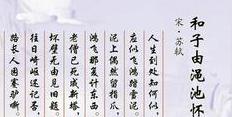 和子由渑池怀
宋·苏轼
人生到处知何似，
应似飞鸿踏雪泥。
泥上偶然留指爪，
鸿飞那复计东西。
老僧已死成新塔，
坏壁无由见旧题。
往日崎岖还记否，
路长人困蹇驴嘶。